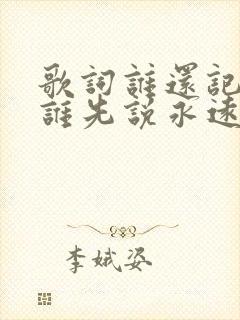 歌詞誰還記
誰先說永遠
李娥姿